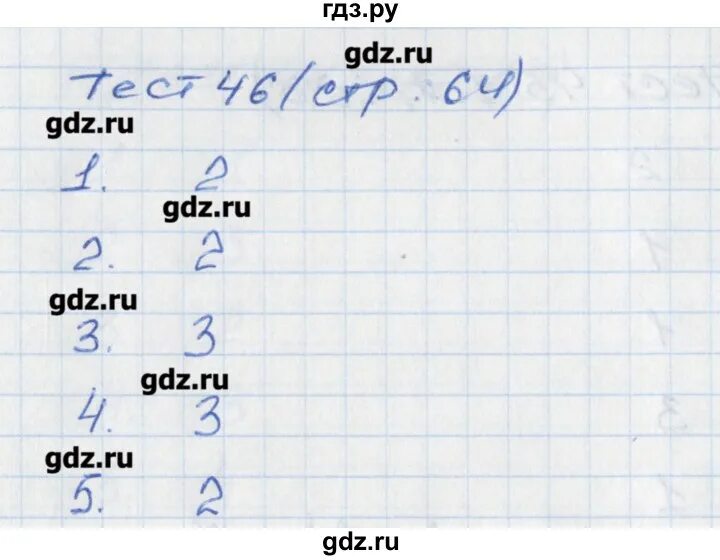 гдз.ру
gdz.ru
Тест 46 (стр. 64)
gdz.ru
1. 2
gdz.ru
2. 2
gdz.ru
3. 3
gdz.ru
4. 3
gdz.ru
5. 2
gdz.ru